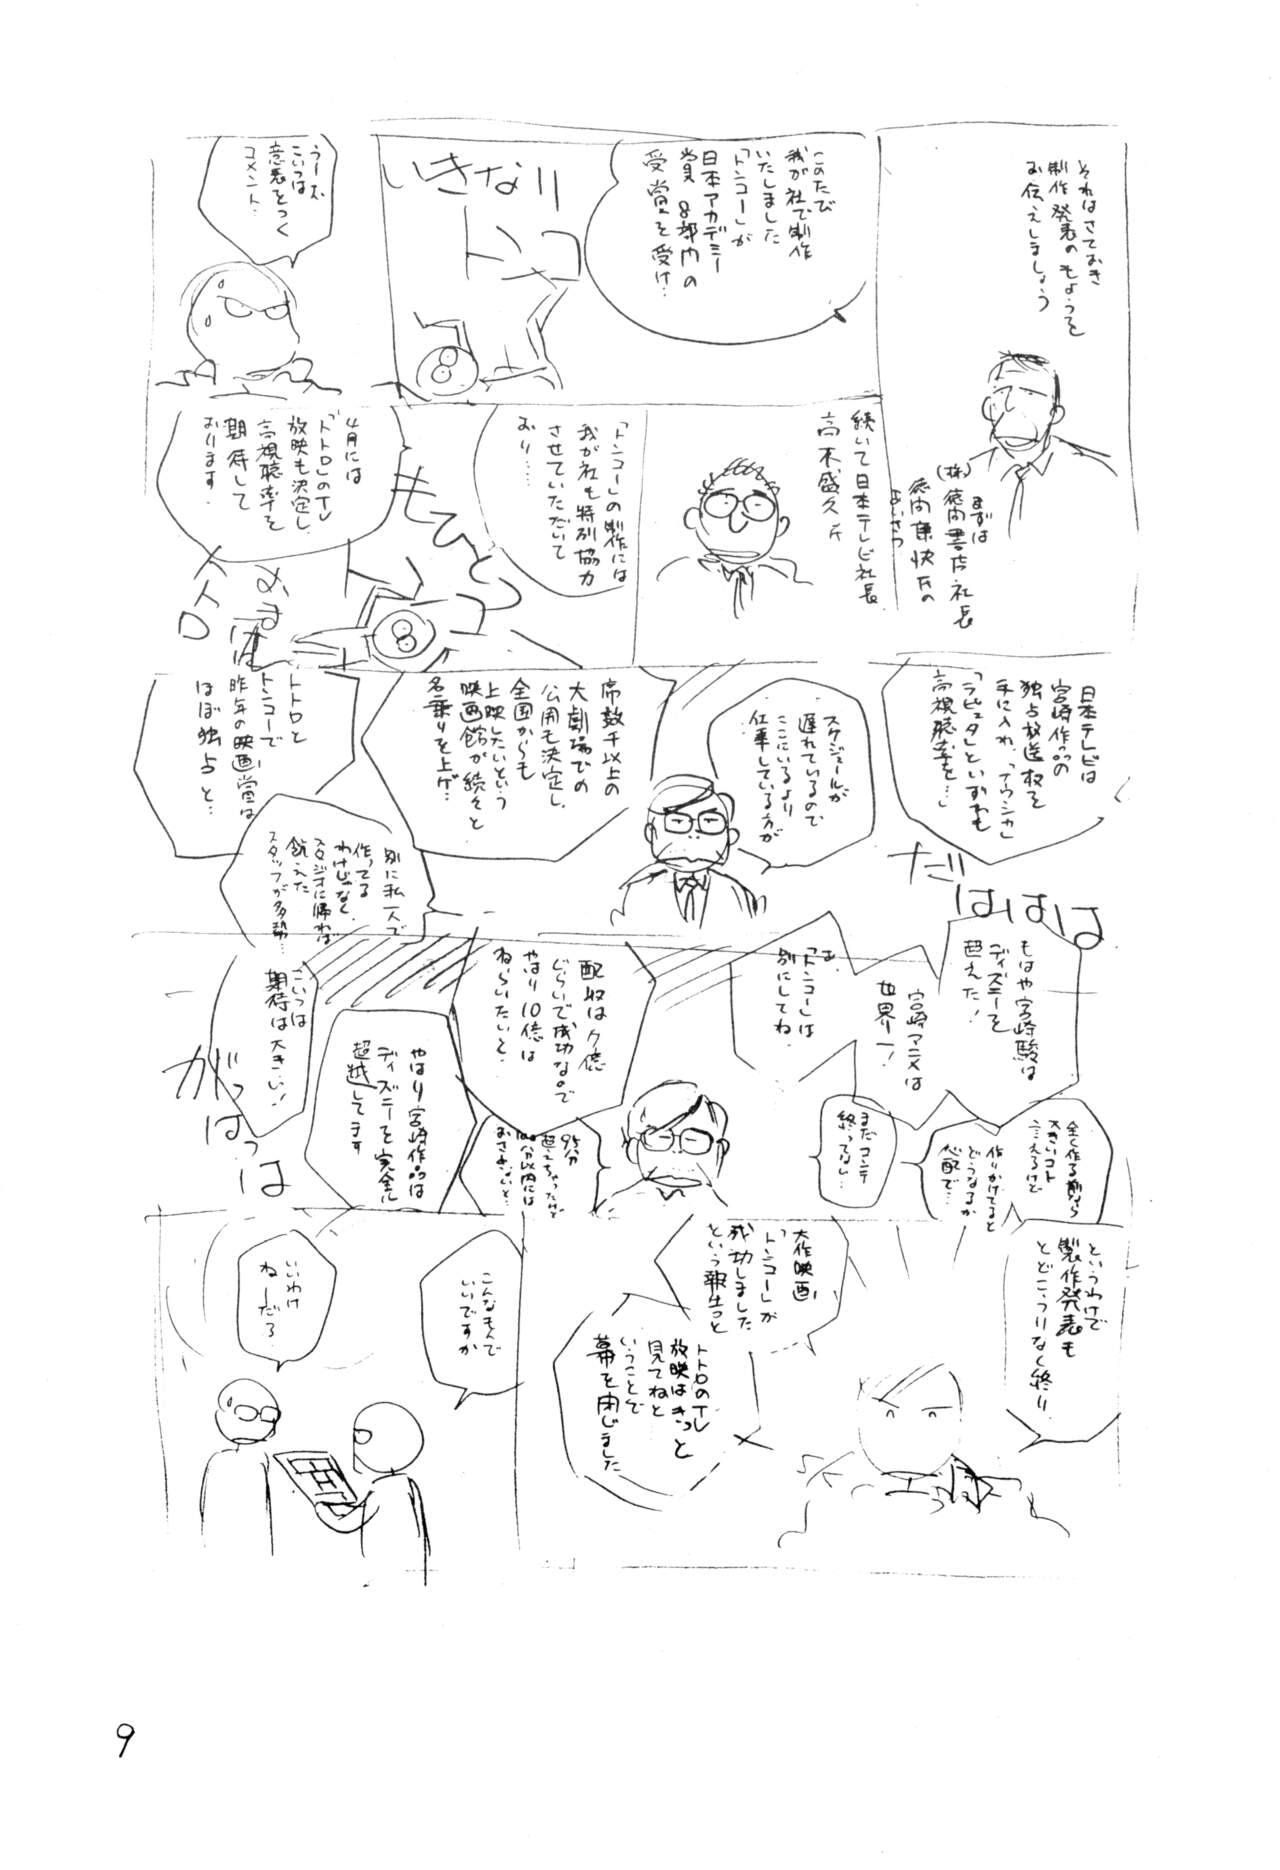 それはさておき
制作発表のもようを
お伝えしましょう
まずは
(株)徳間書店社長
徳間康快氏の
あいさつ
このたび
我が社で制作
いたしました
「トンコー」が
日本アカデミー
賞8部門の
受賞を受け…
いきなり
トンコー
8
うーむ
こいつは
意表をつく
コメント…
続いて日本テレビ社長
高木盛久氏
「トンコー」の制作には
我が社も特別協力
させていただいて
おり……
もひとつ
トンコー
8
4月には
「トトロ」のTV
放映も決定し、
高視聴率を
期待して
おります.
おまけ
トトロ
日本テレビは
宮崎作品の
独占放送権を
手に入れ、「ナウシカ」
「ラピュタ」といずれも
高視聴率を…
だはははは
スケジュールが
遅れているので
ここにいるより
仕事している方が
席数千以上の
大劇場での
公開も決定し、
全国からも
上映したいという
映画館が続々と
名乗りを上げ…
トトロと
トンコーで
昨年の映画賞は
ほぼ独占と…
別に私一人で
作ってる
わけじゃなく、
スタジオに帰れば
飢えた
スタッフが多勢…
もはや宮崎駿は
ディズニーを
超えた!
宮崎アニメは
世界一!
「トンコー」は
別にしてね.
全く作る前なら
大きいコト
言えるけど
作りかけてると
どうなるか
心配で…
まだコンテ
終ってない…
配収は7億
ぐらいで成功なので
やはり10億は
ねらいたいと.
95分
超えちゃったけど
100分以内には
おさめたいと…
やはり宮崎作品は
ディズニーを完全に
超越してます
こいつは
期待は大きい!
がっはっは
というわけで
製作発表も
とどこうりなく終り
大作映画
「トンコー」が
成功しました
という報告と
トトロのTV
放映はきっと
見てねと
いうことで
幕を閉じました
こんなもんで
いいですか
いいわけ
ねーだろ
9